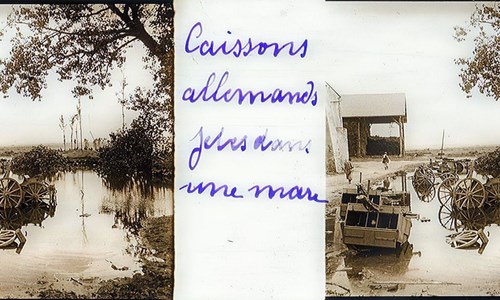 Caissons
allemands
jetes dans
une mare